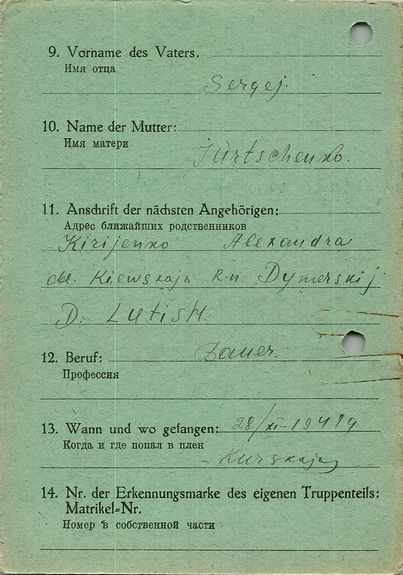 9. Vorname des Vaters.
Имя отца
Sergej.
10. Name der Mutter:
Имя матери
Jurtschenko.
11. Anschrift der nächsten Angehörigen:
Адрес ближайших родственников
Kirijenko Alexandra
obl. Kiewskaja R-n Dymerskij
D. Lutish.
12. Beruf: Bauer.
Профессия
13. Wann und wo gefangen: 28/XI-1941
Когда и где попал в плен
Kurskaja
14. Nr. der Erkennungsmarke des eigenen Truppenteils:
Matrikel-Nr.
Номер в собственной части